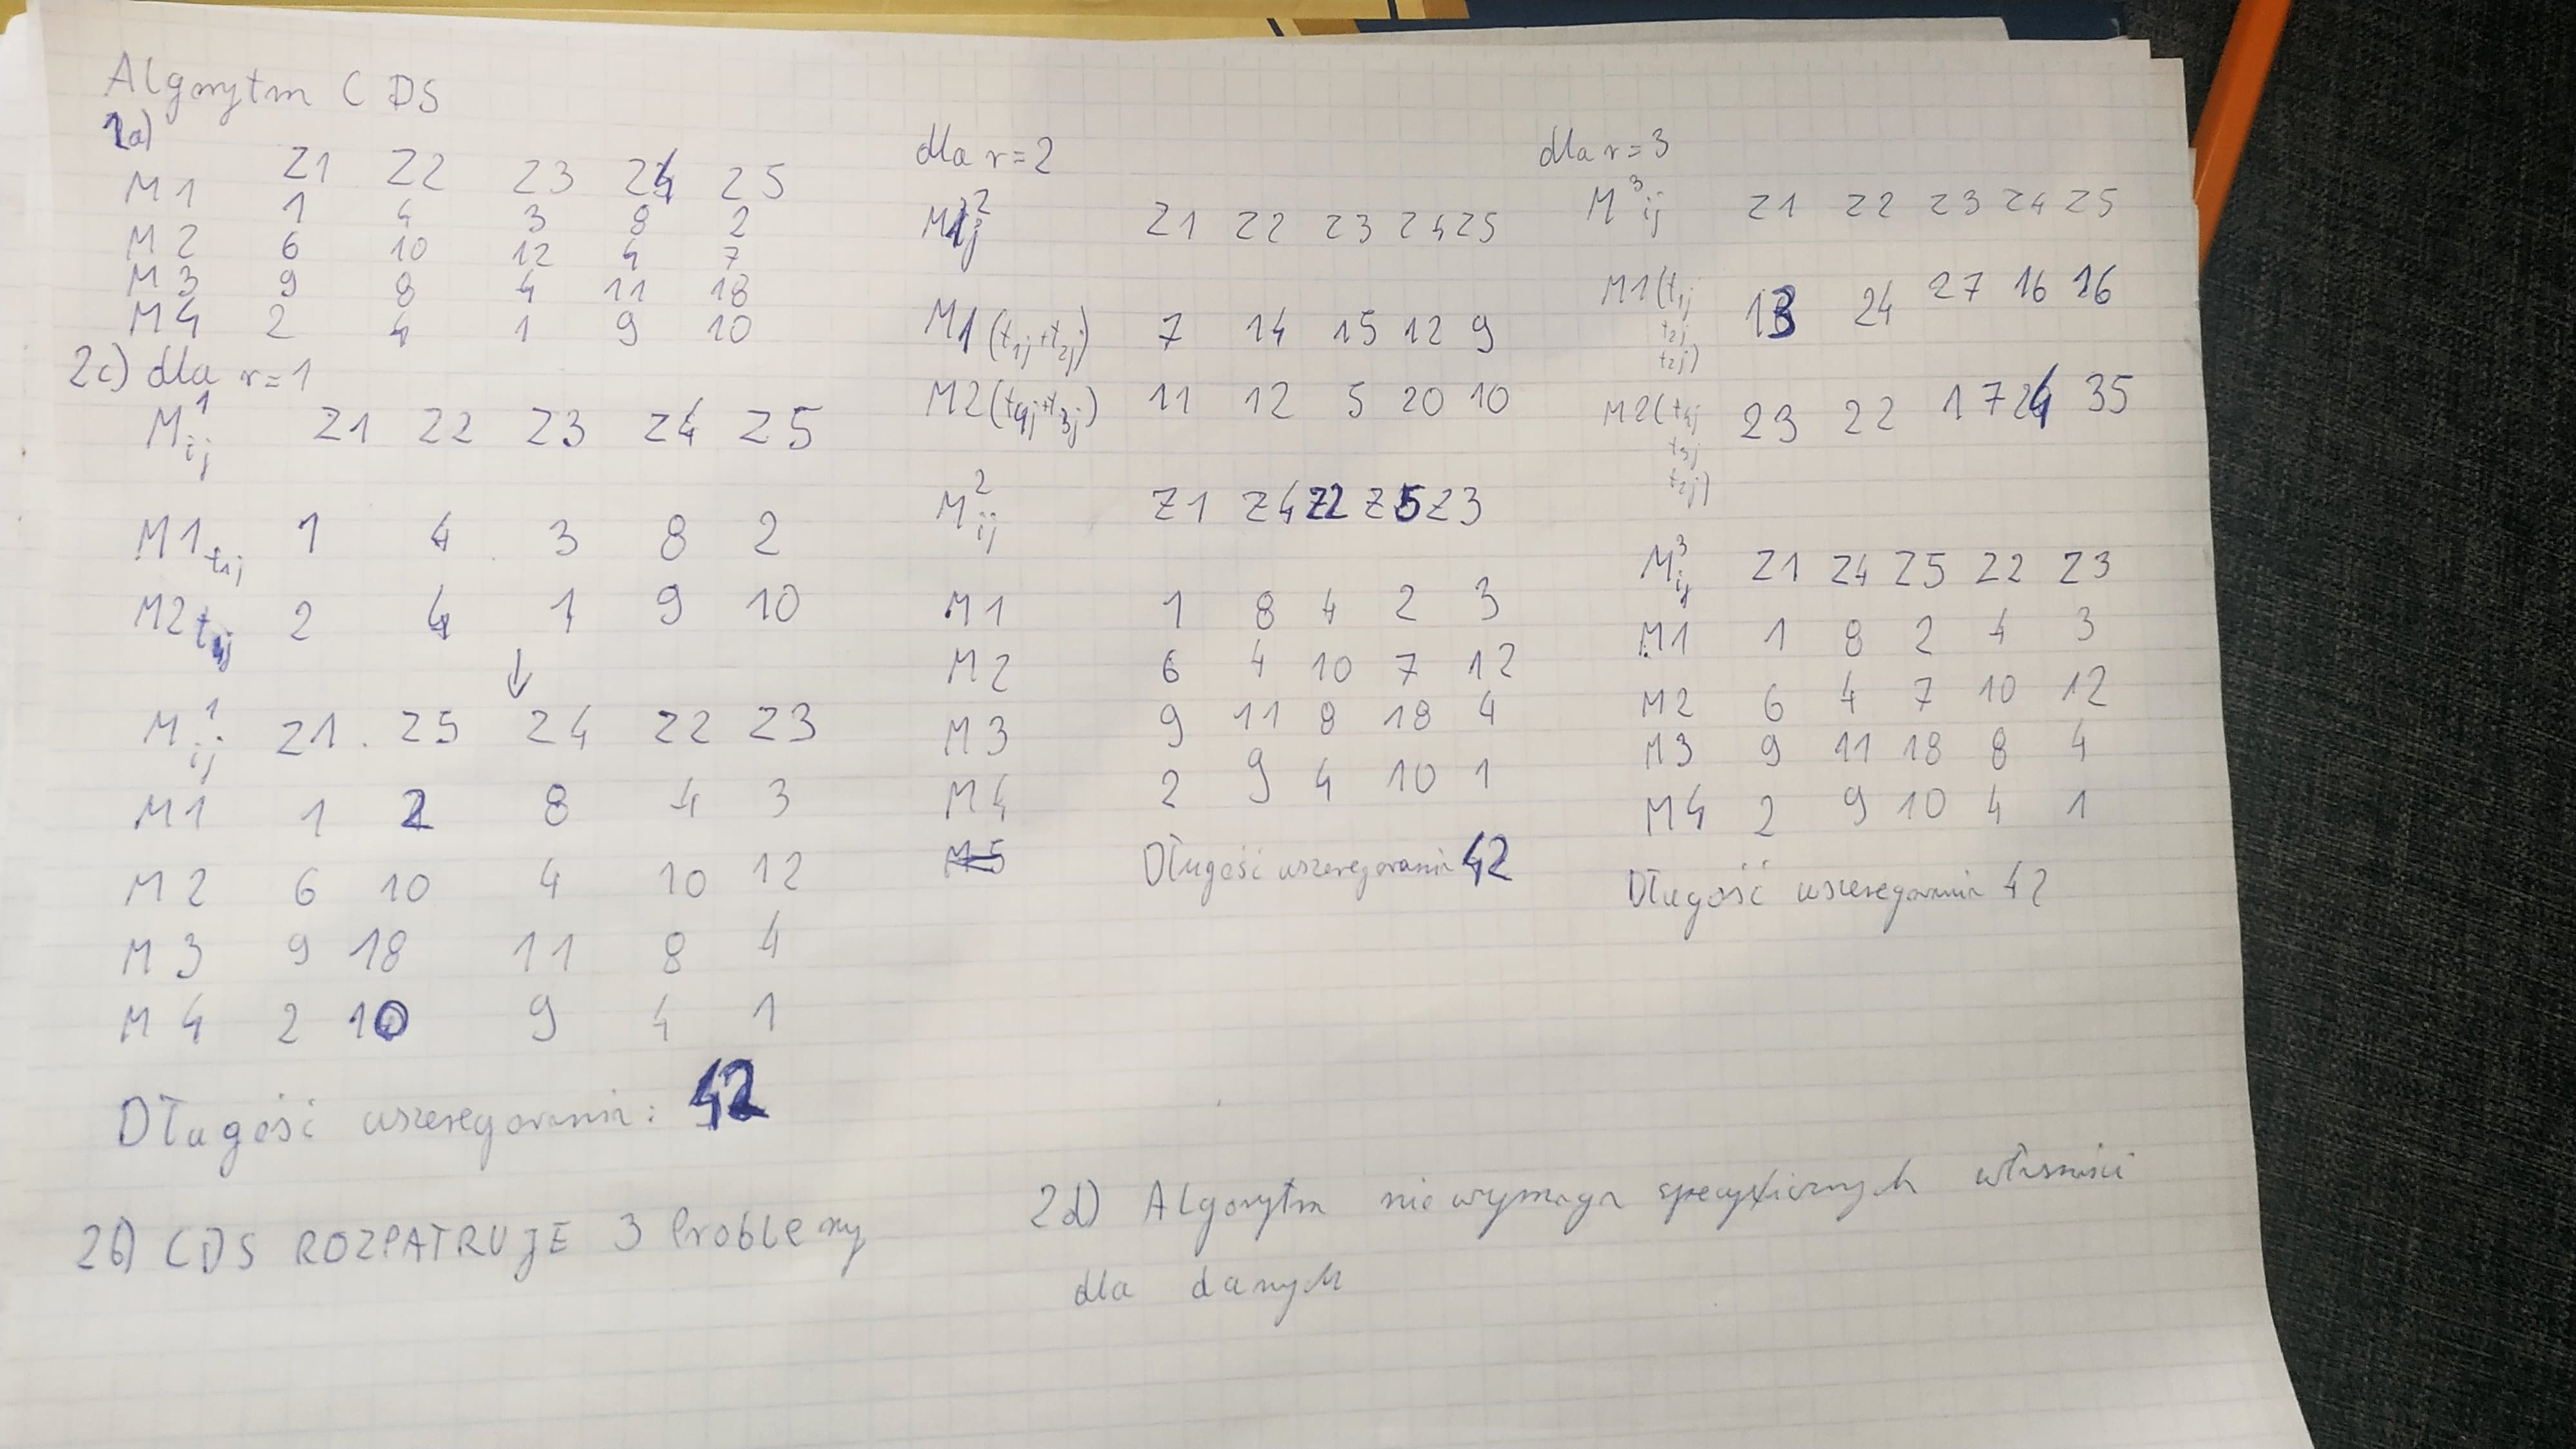 Algorytm CDS
1a)
Z1 Z2 Z3 Z4 Z5
M1 1 4 3 8 2
M2 6 10 12 4 7
M3 9 8 4 11 18
M4 2 4 1 9 10
2c) dla r=1
M¹ij Z1 Z2 Z3 Z4 Z5
M1 t1j 1 4 3 8 2
M2 t4j 2 4 1 9 10
↓
M¹ij Z1 Z5 Z4 Z2 Z3
M1 1 2 8 4 3
M2 6 10 4 10 12
M3 9 18 11 8 4
M4 2 10 9 4 1
Długość uszeregowania: 42
2b) CDS ROZPATRUJE 3 Problemy
dla r=2
M²ij Z1 Z2 Z3 Z4 Z5
M1(t1j+t2j) 7 14 15 12 9
M2(t4j+t3j) 11 12 5 20 10
M²ij Z1 Z4 Z2 Z5 Z3
M1 1 8 4 2 3
M2 6 4 10 7 12
M3 9 11 8 18 4
M4 2 9 4 10 1
M5
Długość uszeregowania 42
dla r=3
M³ij Z1 Z2 Z3 Z4 Z5
M1(t1j 13 24 27 16 16
t2j
t2j)
M2(t4j 23 22 17 24 35
t3j
t2j)
M³ij Z1 Z4 Z5 Z2 Z3
M1 1 8 2 4 3
M2 6 4 7 10 12
M3 9 11 18 8 4
M4 2 9 10 4 1
Długość uszeregowania 42
2d) Algorytm nie wymaga specyficznych własności
dla danych